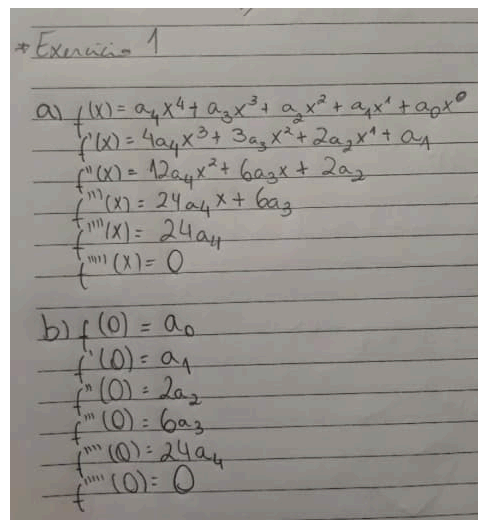 * Exercício 1
a) f(x) = a₄x⁴ + a₃x³ + a₂x² + a₁x¹ + a₀x⁰
f'(x) = 4a₄x³ + 3a₃x² + 2a₂x¹ + a₁
f''(x) = 12a₄x² + 6a₃x + 2a₂
f'''(x) = 24a₄x + 6a₃
f''''(x) = 24a₄
f'''''(x) = 0
b) f(0) = a₀
f'(0) = a₁
f''(0) = 2a₂
f'''(0) = 6a₃
f''''(0) = 24a₄
f'''''(0) = 0